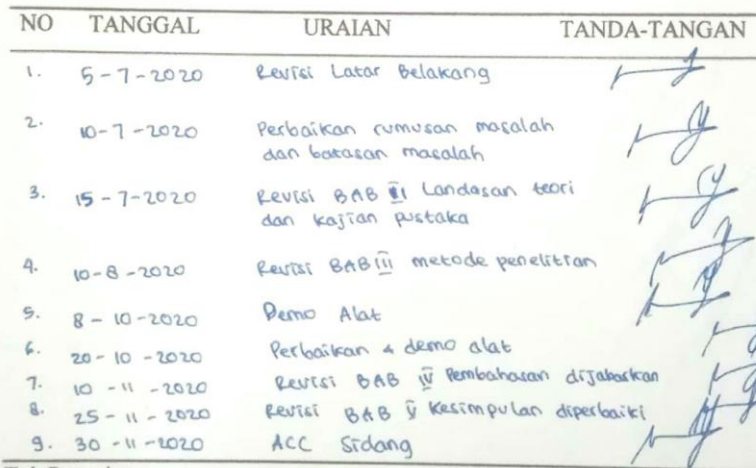 NO TANGGAL URAIAN TANDA-TANGAN
1. 5-7-2020 Revisi Latar Belakang
2. 10-7-2020 Perbaikan rumusan masalah
dan batasan masalah
3. 15-7-2020 Revisi BAB II Landasan teori
dan kajian pustaka
4. 10-8-2020 Revisi BAB III metode penelitian
5. 8-10-2020 Demo Alat
6. 20-10-2020 Perbaikan & demo alat
7. 10-11-2020 Revisi BAB IV Pembahasan dijabarkan
8. 25-11-2020 Revisi BAB V Kesimpulan diperbaiki
9. 30-11-2020 ACC Sidang